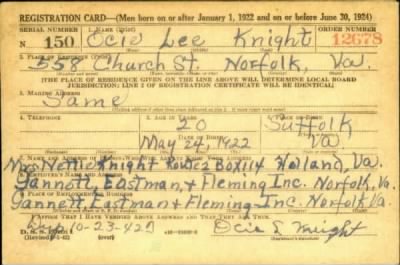 REGISTRATION CARD—(Men born on or after January 1, 1922 and on or before June 30, 1924)
SERIAL NUMBER 1. NAME (Print) ORDER NUMBER
N 150 Ocie Lee Knight 12678
2. PLACE OF RESIDENCE (Print)
558 Church St. Norfolk, Va.
[THE PLACE OF RESIDENCE GIVEN ON THE LINE ABOVE WILL DETERMINE LOCAL BOARD
JURISDICTION; LINE 2 OF REGISTRATION CERTIFICATE WILL BE IDENTICAL]
3. MAILING ADDRESS
Same
4. TELEPHONE 5. AGE IN YEARS 6. PLACE OF BIRTH
20 Suffolk
DATE OF BIRTH
May 24, 1922 Va.
7. NAME AND ADDRESS OF PERSON WHO WILL ALWAYS KNOW YOUR ADDRESS
Mrs. Nettie Knight Route 2 Box 114 Holland, Va.
8. EMPLOYER'S NAME AND ADDRESS
Gannett, Eastman, & Fleming Inc. Norfolk, Va.
9. PLACE OF EMPLOYMENT OR BUSINESS
Gannett, Eastman & Fleming Inc. Norfolk Va.
I AFFIRM THAT I HAVE VERIFIED ABOVE ANSWERS AND THAT THEY ARE TRUE.
D. S. S. Form 1
10-23-42
Ocie L Knight